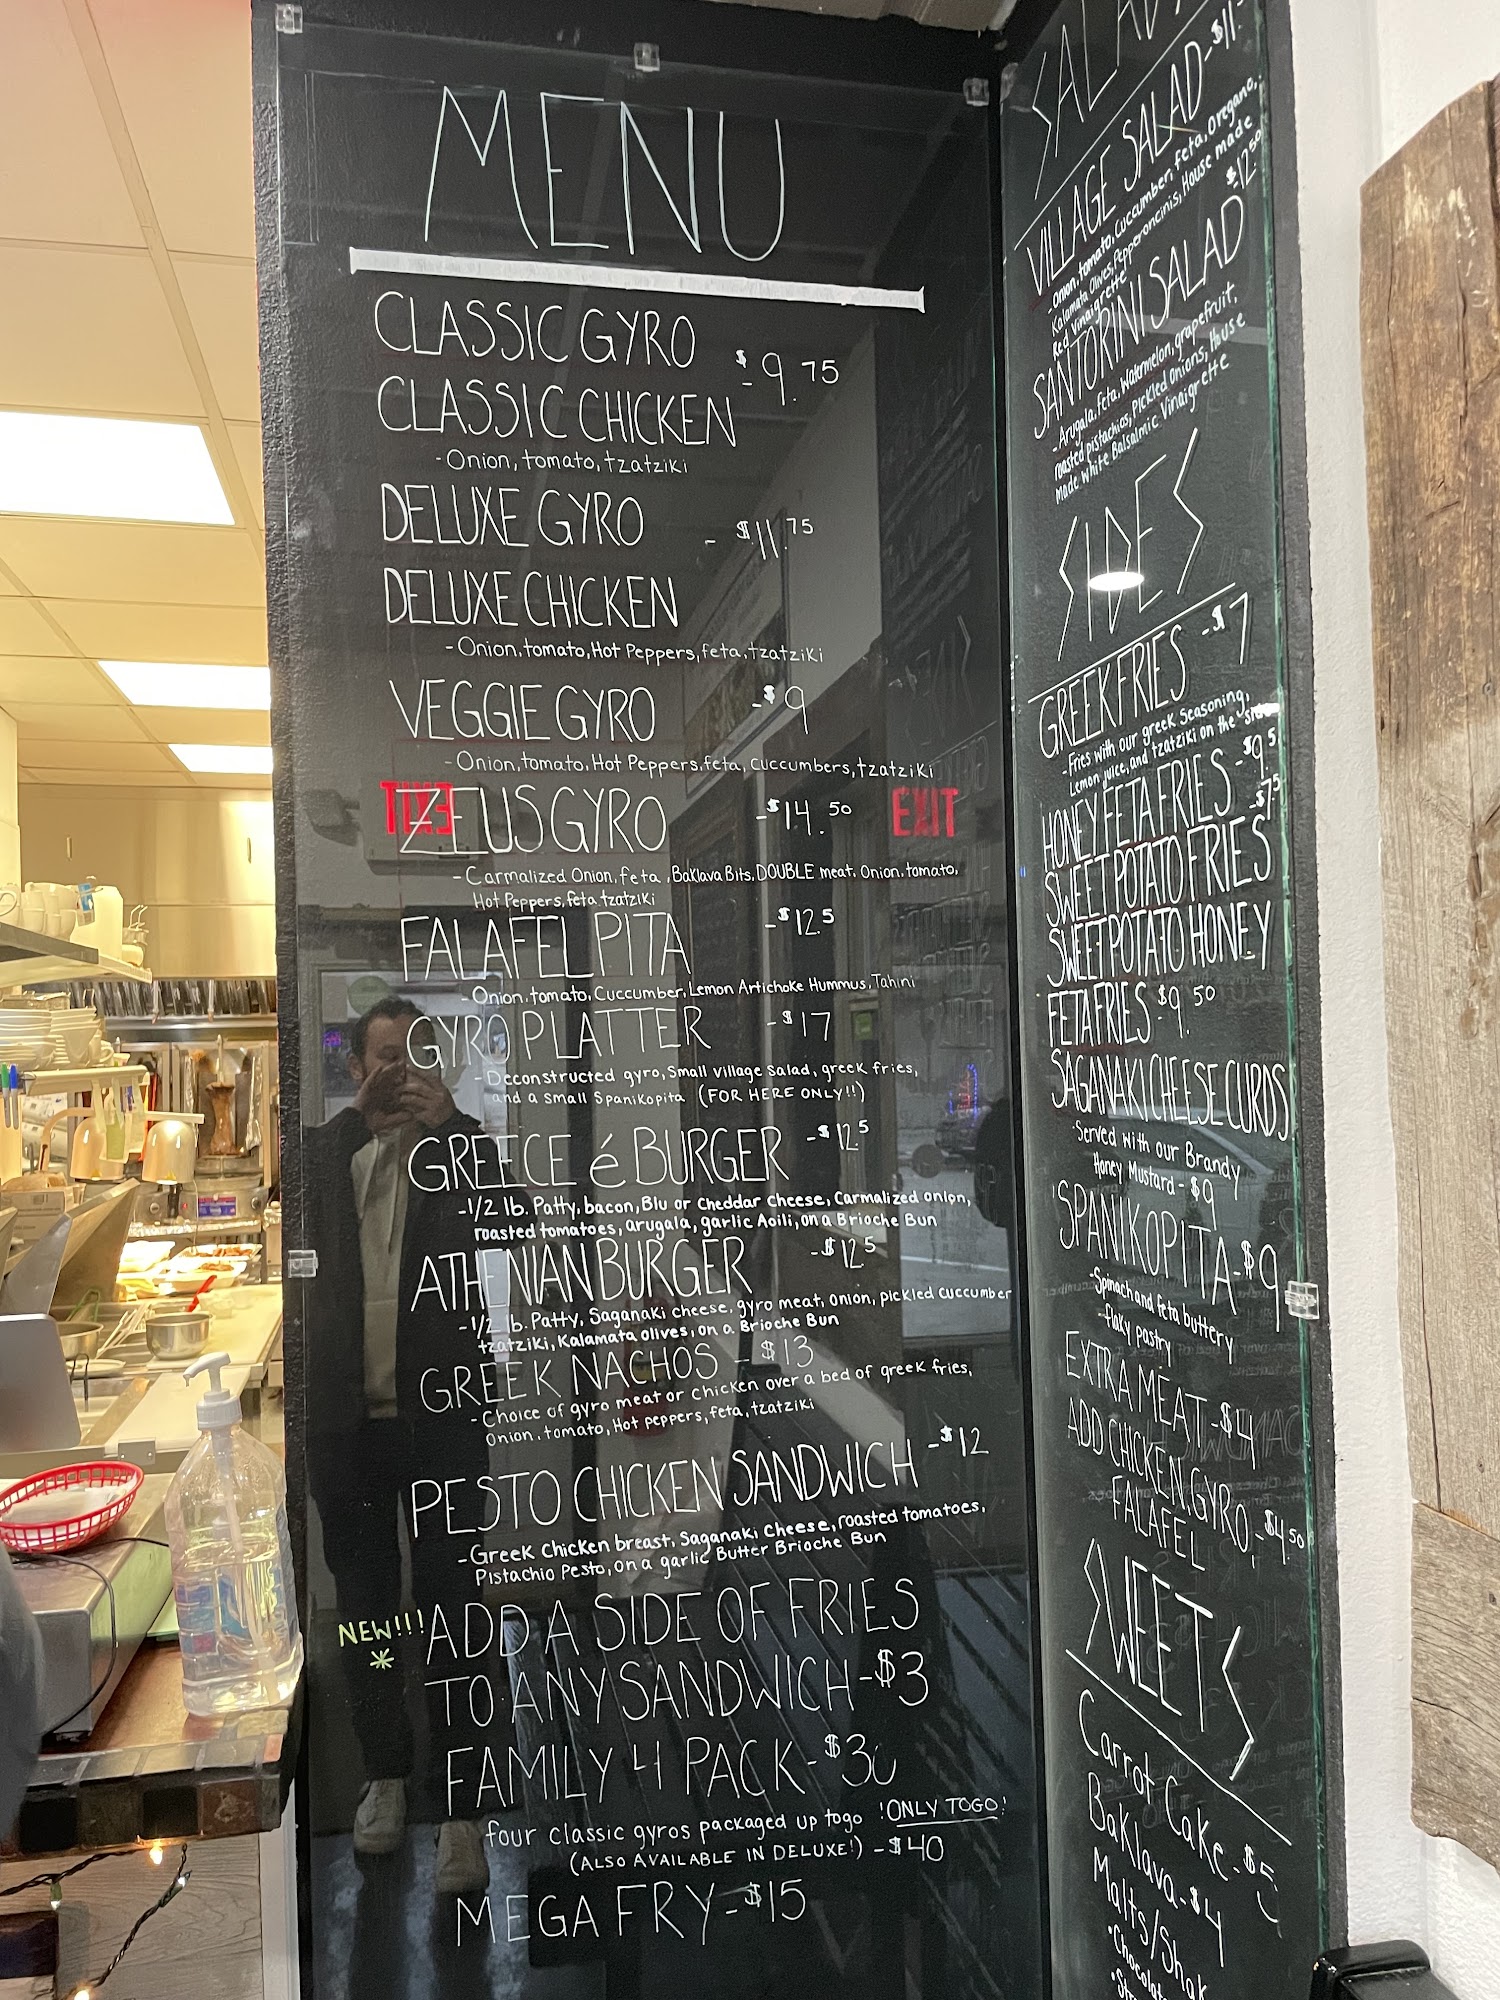 MENU
CLASSIC GYRO
$9.75
CLASSIC CHICKEN
-Onion, tomato, tzatziki
DELUXE GYRO - $11.75
DELUXE CHICKEN
-Onion, tomato, Hot Peppers, feta, tzatziki
VEGGIE GYRO -$9
-Onion, tomato, Hot Peppers, feta, cuccumbers, tzatziki
ZEUS GYRO -$14.50
EXIT
-Carmalized Onion, feta, Baklava Bits, DOUBLE meat, Onion, tomato,
Hot Peppers, feta tzatziki
FALAFEL PITA -$12.5
-Onion, tomato, Cuccumber, Lemon Artichoke Hummus, Tahini
GYRO PLATTER -$17
-Deconstructed gyro, Small village Salad, greek fries,
and a small Spanikopita (FOR HERE ONLY!!)
GREECE é BURGER -$12.5
-1/2 lb. Patty, bacon, Blu or Cheddar Cheese, Carmalized onion,
roasted tomatoes, arugala, garlic Aoili, on a Brioche Bun
ATHENIAN BURGER -$12.5
-1/2 lb. Patty, Saganaki cheese, gyro meat, onion, pickled cuccumber
tzatziki, Kalamata olives, on a Brioche Bun
GREEK NACHOS - $13
-Choice of gyro meat or chicken over a bed of greek fries,
Onion, tomato, Hot peppers, feta, tzatziki
PESTO CHICKEN SANDWICH -$12
-Greek Chicken breast, Saganaki Cheese, roasted tomatoes,
Pistachio Pesto, on a garlic Butter Brioche Bun
NEW!!! ADD A SIDE OF FRIES
* TO ANY SANDWICH -$3
FAMILY 4 PACK -$30
four classic gyros packaged up togo !ONLY TOGO!
(ALSO AVAILABLE IN DELUXE!) -$40
MEGA FRY -$15
SALADS
VILLAGE SALAD -$11.
-Onion, tomato, Cuccumber, feta, Oregano,
Kalamata Olives, Pepperoncinis, House made
Red Vinaigrette
SANTORINI SALAD $12.50
-Arugala, feta, Watermelon, grapefruit,
roasted pistachios, pickled onions, House
Made White Balsalmic Vinaigrette
SIDES
GREEK FRIES -$7
-Fries with our greek Seasoning,
Lemon juice, and tzatziki on the side
HONEY FETA FRIES -$9.5
SWEET POTATO FRIES -$7.5
SWEET POTATO HONEY
FETA FRIES $9.50
SAGANAKI CHEESE CURDS
-Served with our Brandy
Honey Mustard -$9
SPANIKOPITA -$9
-Spinach and feta buttery
flaky pastry
EXTRA MEAT -$4
ADD CHICKEN, GYRO,
FALAFEL -$4.50
SWEETS
Carrot Cake -$5
Baklava -$4
Malts/Shak
•Chocolate